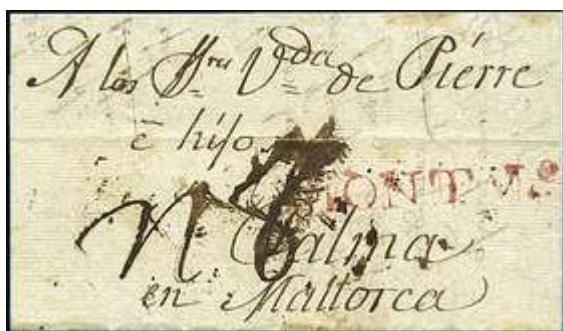 A los S.res V.da de Piérre
é hijo
MONTVo
Palma
en Mallorca